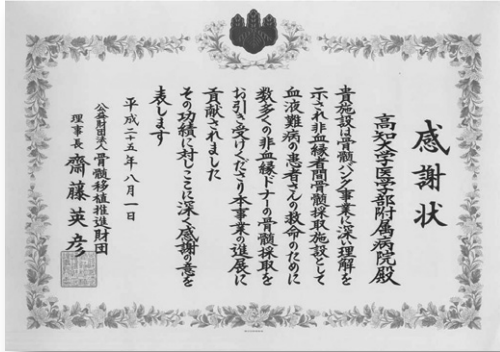 感謝状
高知大学医学部附属病院殿
貴施設は骨髄バンク事業に深い理解を
示され非血縁者間骨髄採取施設として
血液難病の患者さんの救命のために
数多くの非血縁ドナーの骨髄採取を
お引き受けくださり本事業の進展に
貢献されました
その功績に対しここに深く感謝の意を
表します
平成二十五年八月一日
公益財団法人骨髄移植推進財団
理事長 齋藤英彦